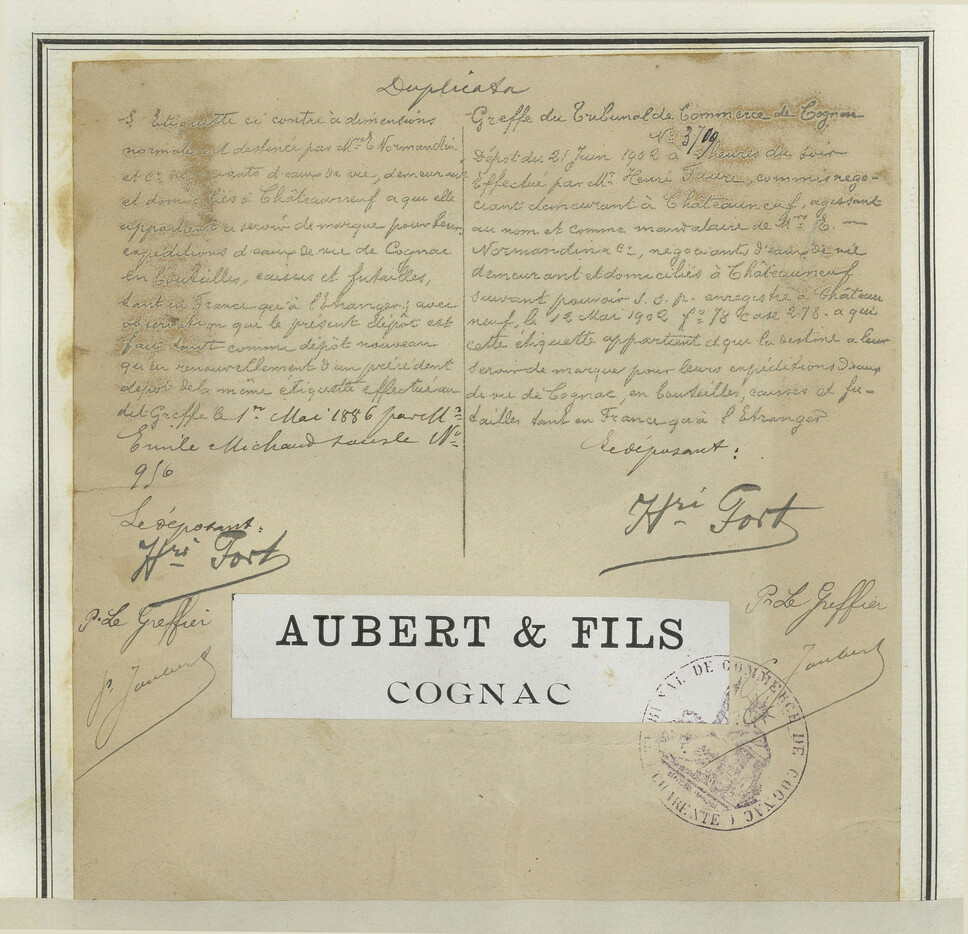 Duplicata
L'Etiquette ci contre à dimensions
normales est destinée par Mrs E. Normandin
et Cie négociants d'eaux de vie, demeurant
et domiciliés à Châteauneuf a qui elle
appartient a servir de marque pour leurs
expéditions d'eaux de vie de Cognac
en bouteilles, caisses et futailles,
tant en France qu'à l'Etranger; avec
observation que le présent dépôt est
fait tant comme dépôt nouveau
qu'en renouvellement d'un précédent
dépôt de la même étiquette effectué au
dit Greffe le 1er Mai 1886 par Mr
Emile Michaud sous le No
956
Le déposant:
Hri Fort
Pr Le Greffier
P. Joubert
Greffe du Tribunal de Commerce de Cognac
No 3709
Dépôt du 21 Juin 1902 à heures du soir
Effectué par Mr Henri Faure, commis négo-
ciant demeurant à Châteauneuf, agissant
au nom et comme mandataire de Mrs E. —
Normandin & Cie, négociants d'eaux de vie
demeurant et domiciliés à Châteauneuf
suivant pouvoir s. s. p. enregistré à Château
neuf, le 12 Mai 1902 fo 78 case 278. a qui
cette étiquette appartient et qui la destine a leur
servir de marque pour leurs expéditions d'eaux
de vie de Cognac, en bouteilles, caisses et fu-
tailles tant en France qu'à l'Etranger
Le déposant:
Hri Fort
Pr Le Greffier
P. Joubert
AUBERT & FILS
COGNAC
TRIBUNAL DE COMMERCE DE COGNAC
(CHARENTE)